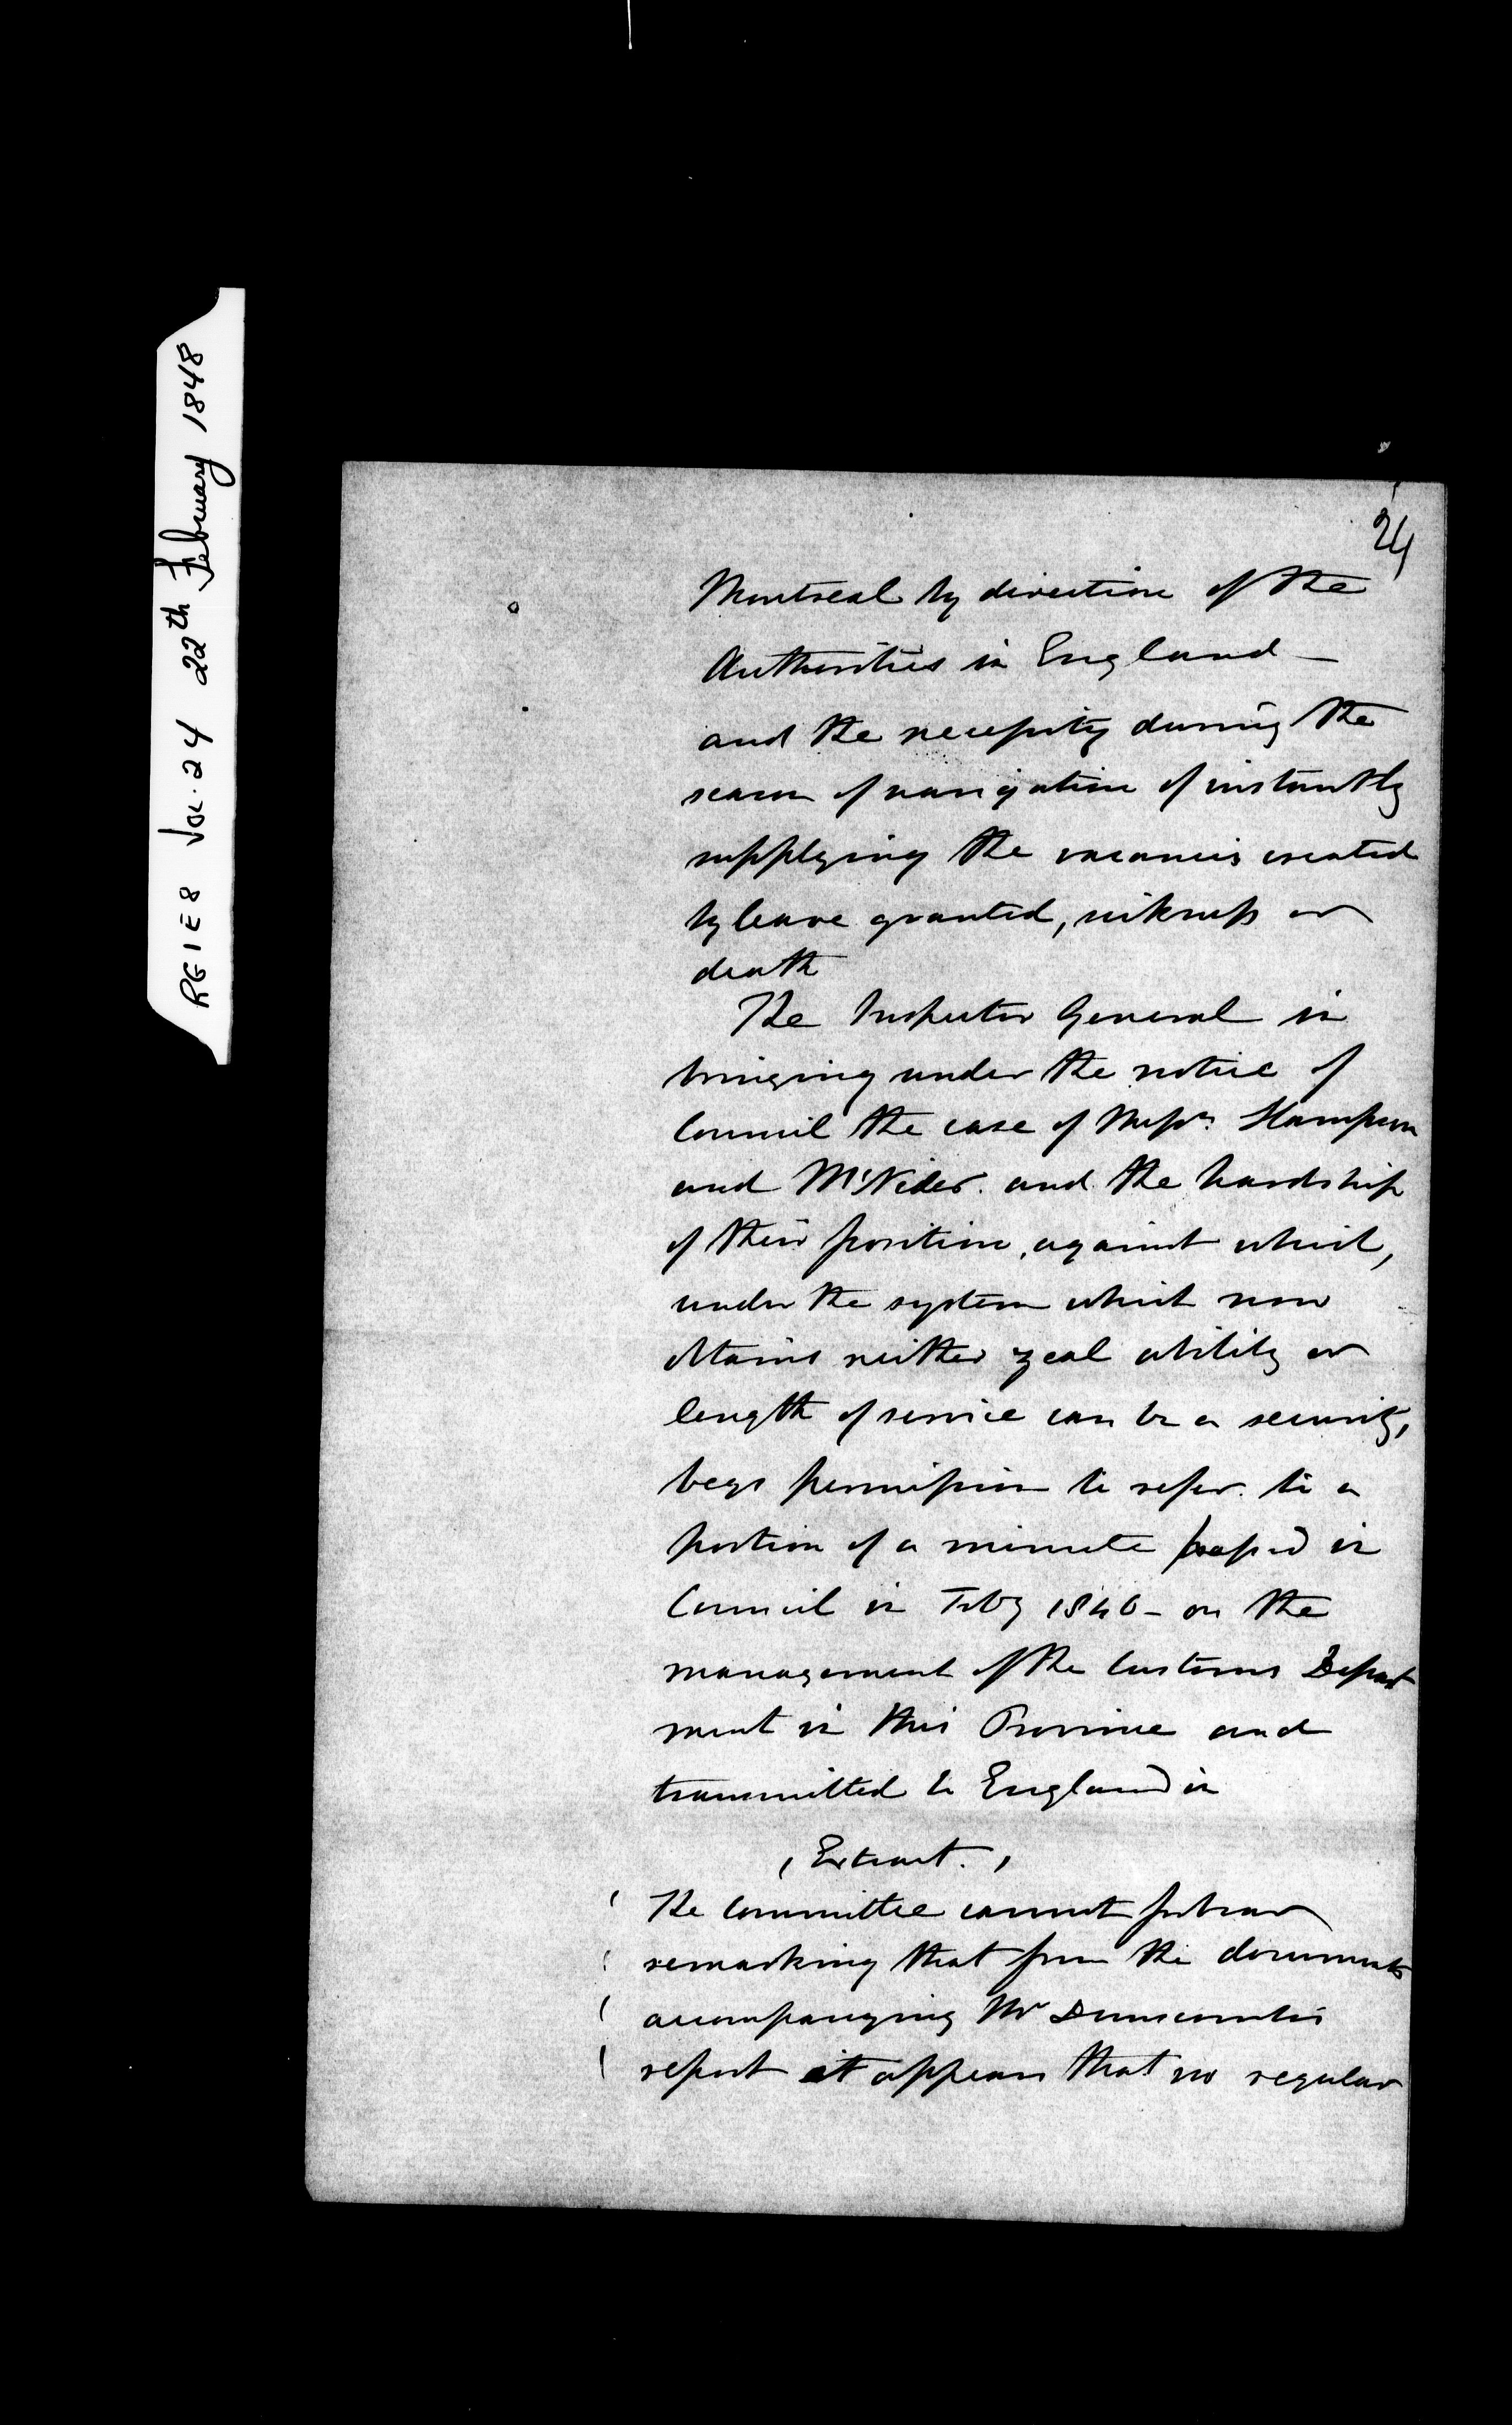 RG 1 E 8 Vol. 24 22th February 1848
24
Montreal by direction of the
Authorities in England —
and the necessity during the
season of navigation of instantly
supplying the vacancies created
by leave granted, sickness or
death
The Inspector General in
bringing under the notice of
Council the case of Messrs
and McNider and the hardship
of their position, against which,
under the system which now
obtains neither zeal ability or
length of service can be a security,
begs permission to refer to a
portion of a minute passed in
Council in Feby 1846 - on the
management of the Customs Depart
ment in this Province and
transmitted to England in
( Extract. )
The Committee cannot forbear
remarking that from the documents
accompanying Mr Dunscombs
report it appears that no regular